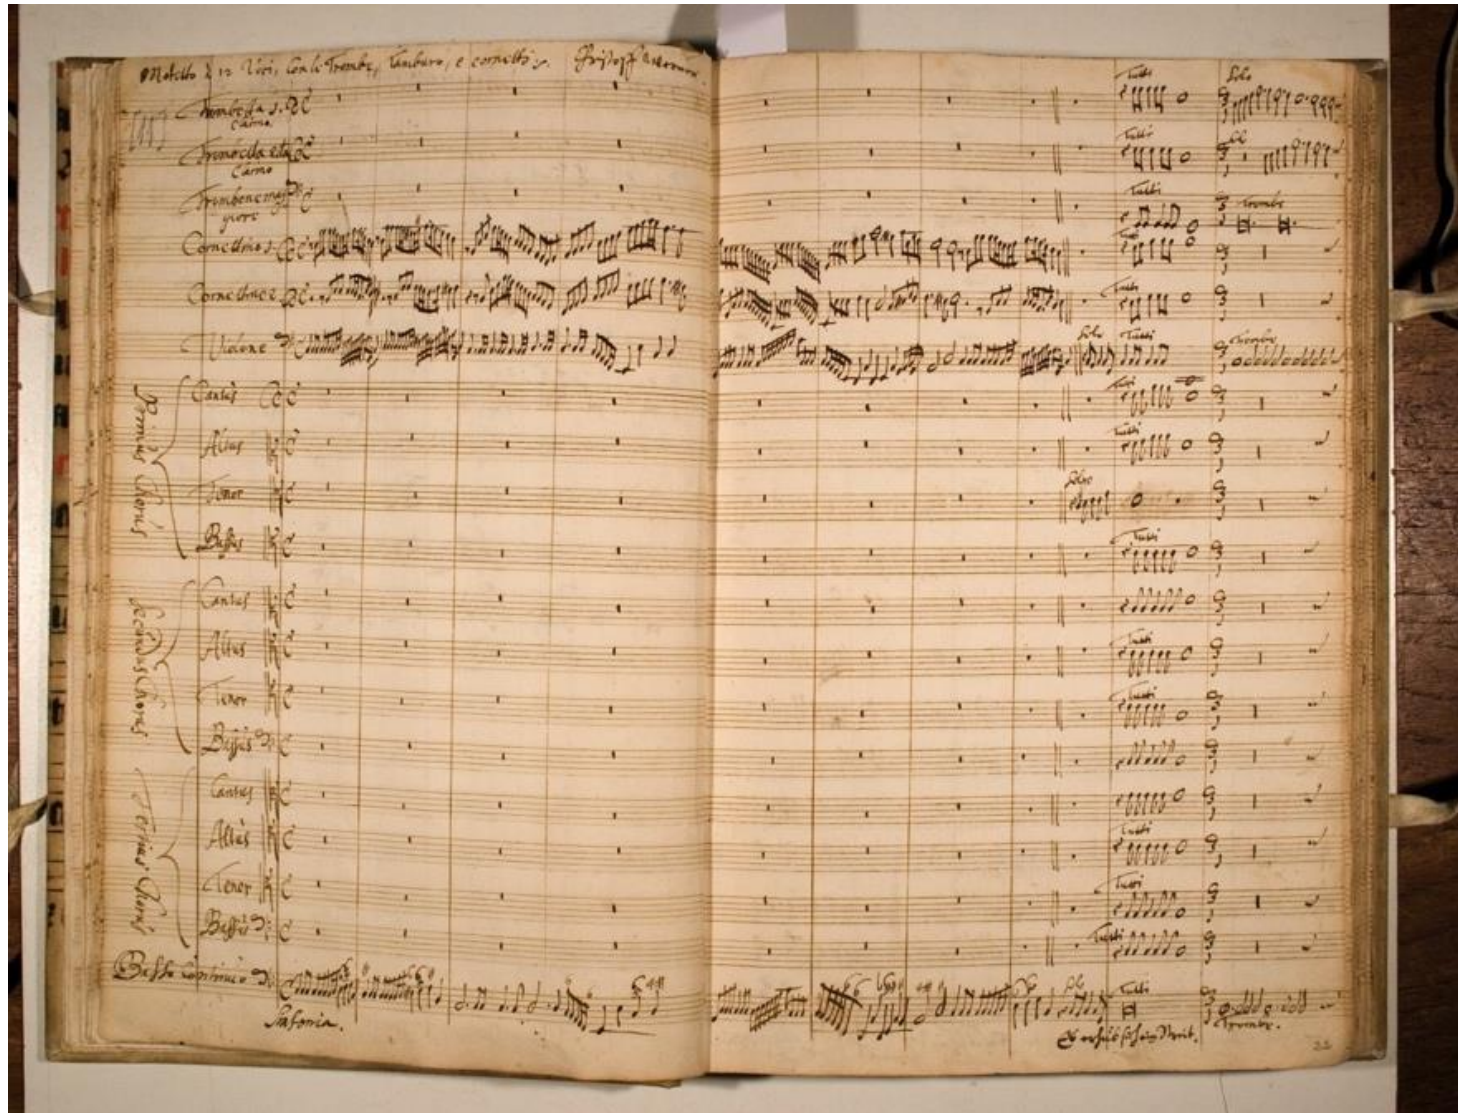 Motetto à 12 Voci, con le Trombe, Tamburo, e cornetti
Carino
Carino
Trombone mag
giore
Cornettino 1.
Cornettino 2
Violone
Primus Chorus
Cantus
Altus
Tenor
Bassus
Secundus Chorus
Cantus
Altus
Tenor
Bassus
Tertius Chorus
Cantus
Altus
Tenor
Bassus
Basso Continuo
Sinfonia.
Tutti
Solo
Tutti
Tutti
Trombe
Tutti
Solo
Tutti
Trombe
Tutti
Tutti
Solo
Tutti
Tutti
Tutti
Tutti
Tutti
Tutti
Tutti
Es erhub sich ein Streit.
Trombe.
22